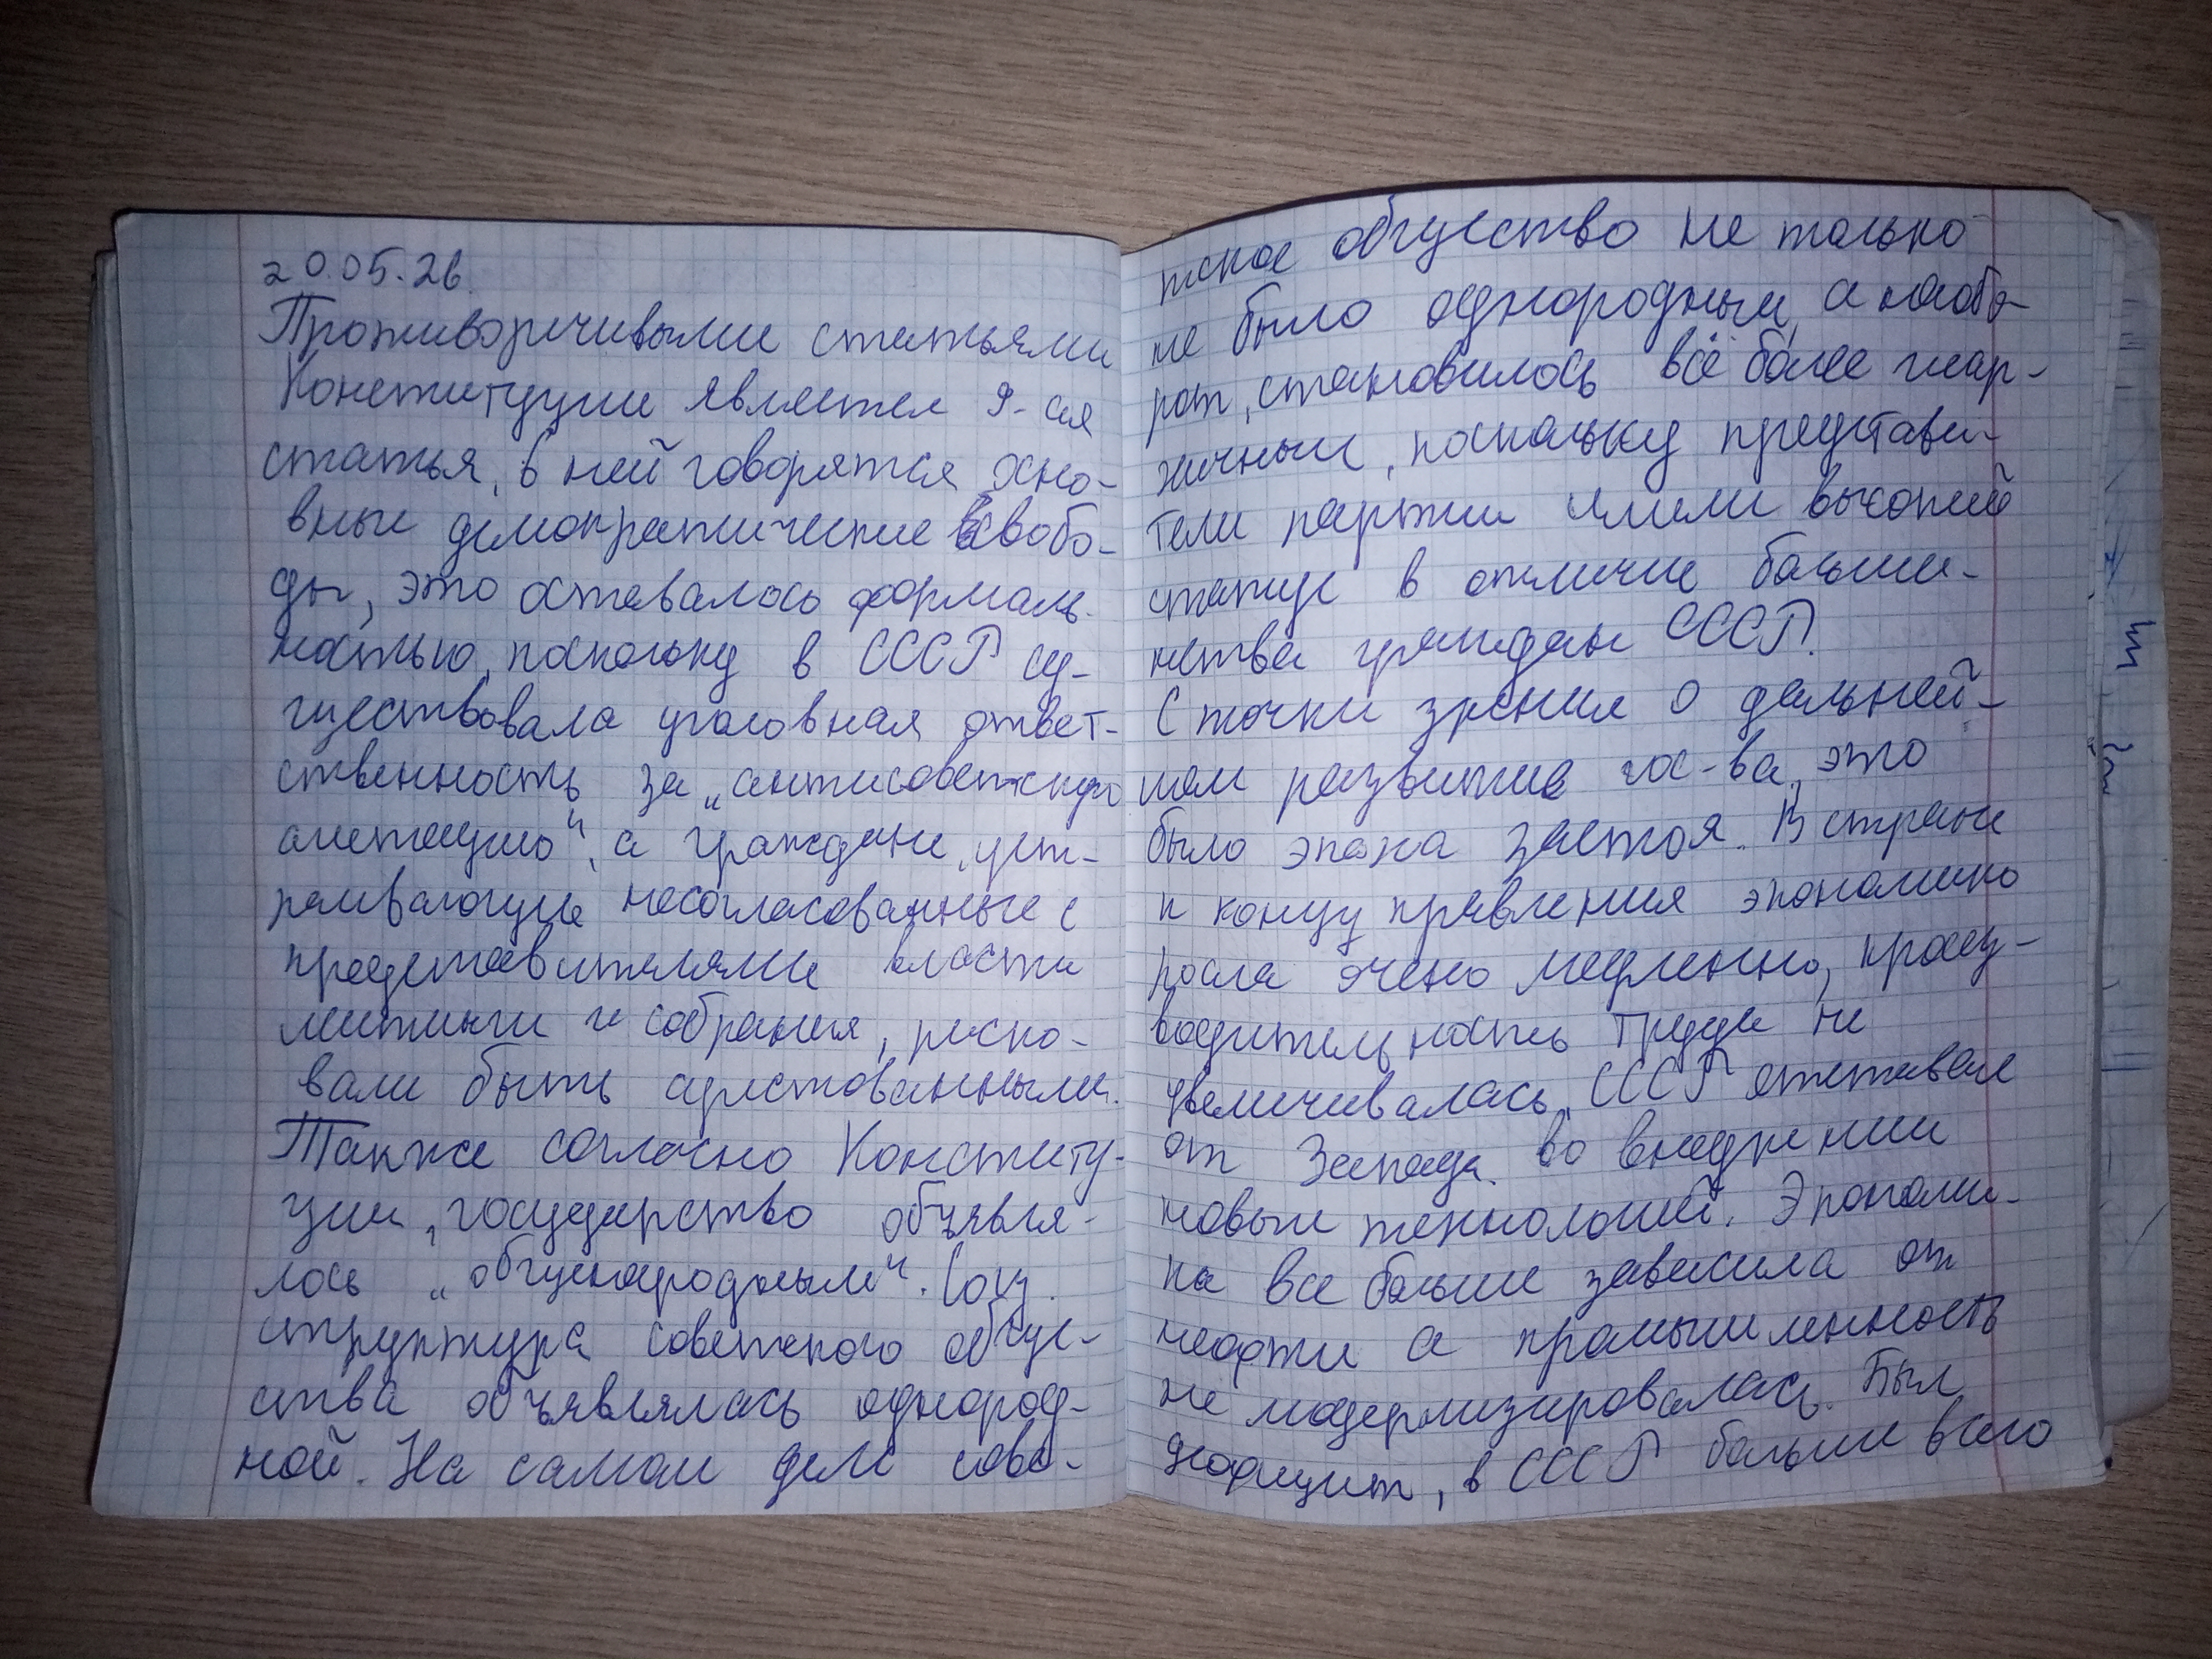 20.05.26.
Противоречивыми статьями
Конституции является 9-ая
статья, в ней говорятся осно-
вные демократические свобо-
ды, это оставалось формаль-
ностью, поскольку в СССР су-
ществовала уголовная ответ-
ственность за „антисоветскую
агитацию“, а граждане, уст-
раивающие несогласованные с
представителями власти
митинги и собрания, риско-
вали быть арестованными.
Также согласно Конститу-
ции, государство объявля-
лось „общенародным“. Соц.
структура советского обще-
ства объявлялась однород-
ной. На самом деле сове-
тское общество не только
не было однородным, а наобо-
рот, становилось всё более иерар-
хичным, поскольку представи-
тели партии имели высокий
статус в отличие больши-
нства граждан СССР.
С точки зрения о дальней-
шем развитие гос-ва, это
было эпоха застоя. В стране
к концу правления экономика
росла очень медленно, произ-
водительность труда не
увеличивалась, СССР отставал
от Запада во внедрении
новых технологий. Экономи-
ка все больше зависила от
нефти а промышленность
не модернизировалась. Был
дефицит, в СССР больше всего